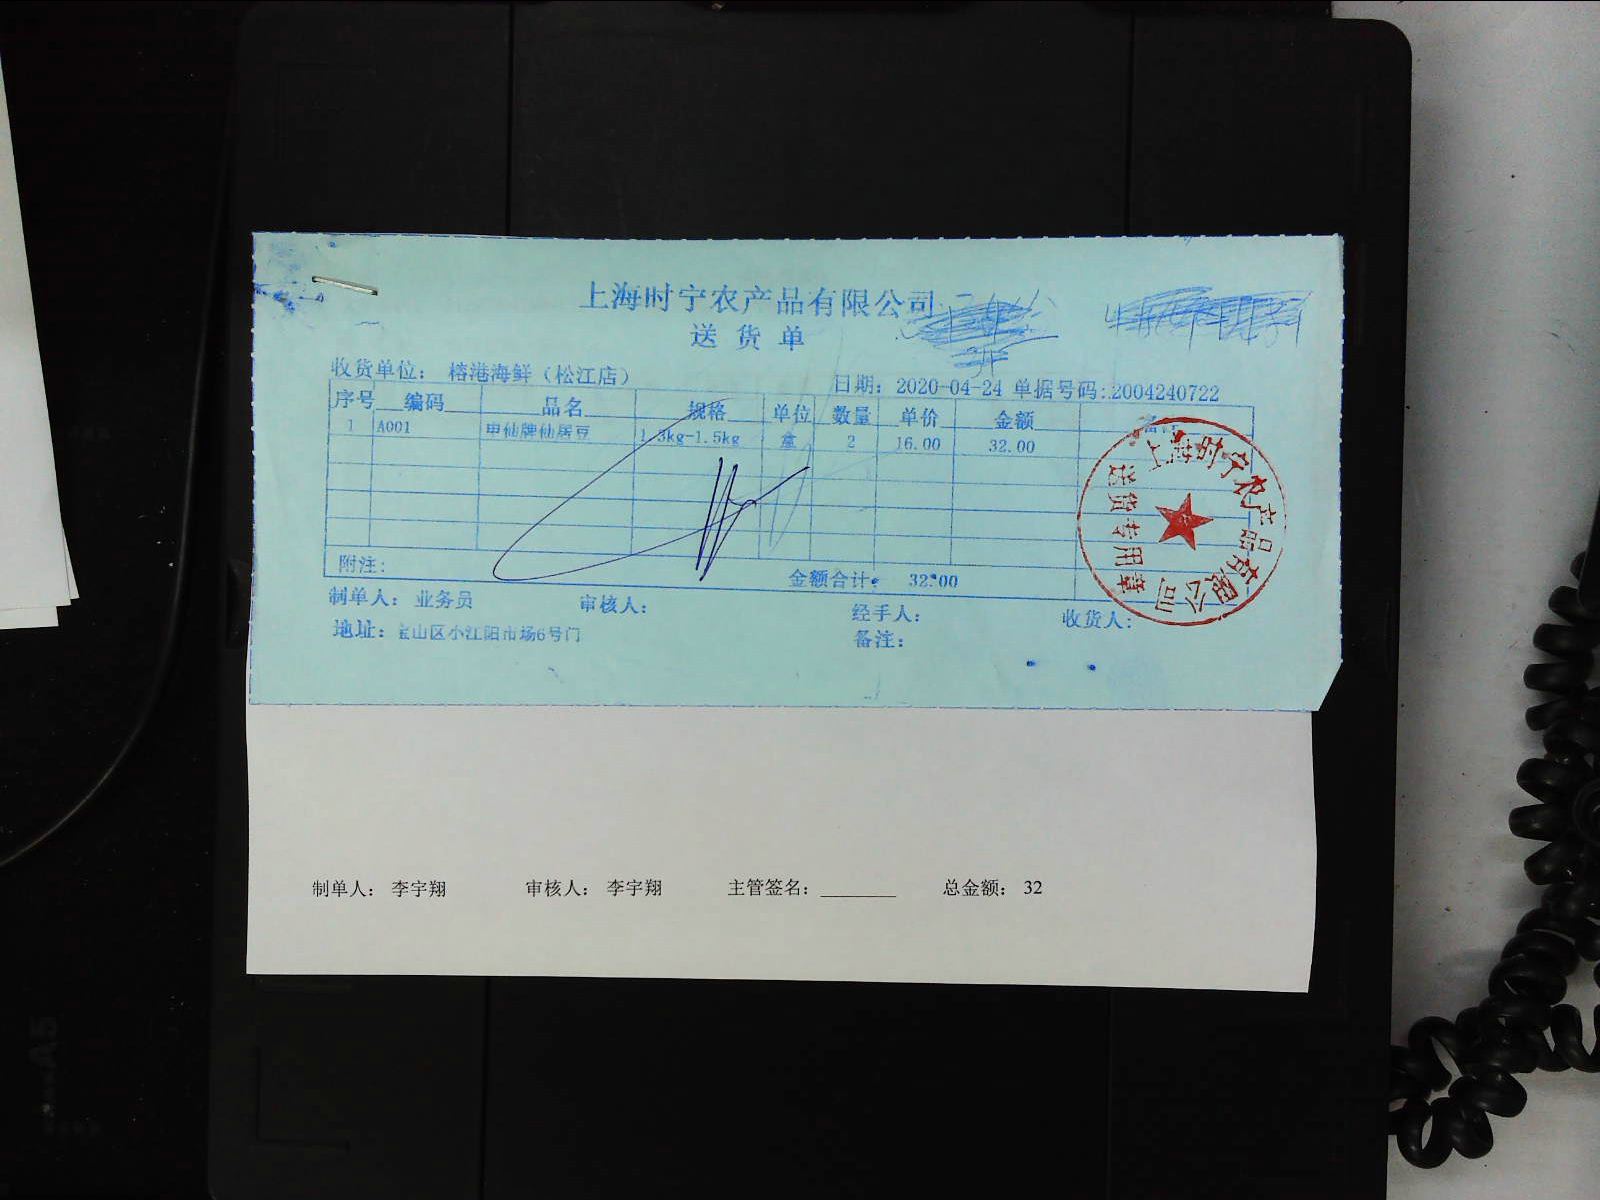 上海时宁农产品有限公司
送货单
收货单位： 榕港海鲜（松江店）
日期： 2020-04-24 单据号码:2004240722
序号 编码 品名 规格 单位 数量 单价 金额
1 A001 申仙牌仙居豆 1.3kg-1.5kg 盒 2 16.00 32.00
附注: 金额合计: 32.00
制单人： 业务员 审核人: 经手人: 收货人:
地址： 宝山区小江阳市场6号门 备注:
上海时宁农产品有限公司
送货专用章
制单人： 李宇翔 审核人： 李宇翔 主管签名: 总金额： 32
A5